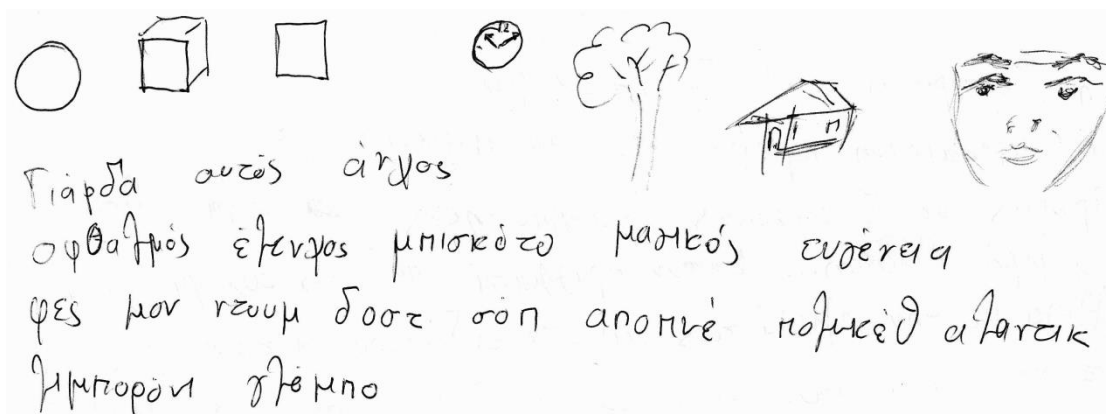 12
Γιάρδα αυτός άγχος
οφθαλμός έλεγχος μπισκότο μαγικός ευγένεια
φες μον ντουμ δοστ σόπ αποπνέ πολυκέθ αλαντικ
λιμπορόνι γλέμπο